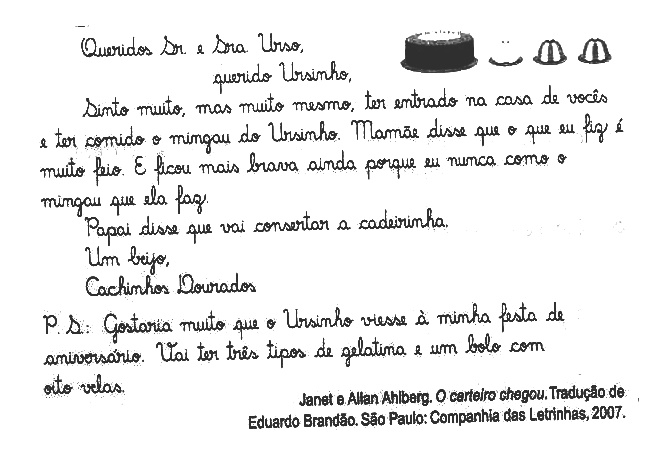 Queridos Sr. e Sra. Urso,
querido Ursinho,
Sinto muito, mas muito mesmo, ter entrado na casa de vocês
e ter comido o mingau do Ursinho. Mamãe disse que o que eu fiz é
muito feio. E ficou mais brava ainda porque eu nunca como o
mingau que ela faz.
Papai disse que vai consertar a cadeirinha.
Um beijo,
Cachinhos Dourados
P. S.: Gostaria muito que o Ursinho viesse à minha festa de
aniversário. Vai ter três tipos de gelatina e um bolo com
oito velas.
Janet e Allan Ahlberg. O carteiro chegou. Tradução de
Eduardo Brandão. São Paulo: Companhia das Letrinhas, 2007.